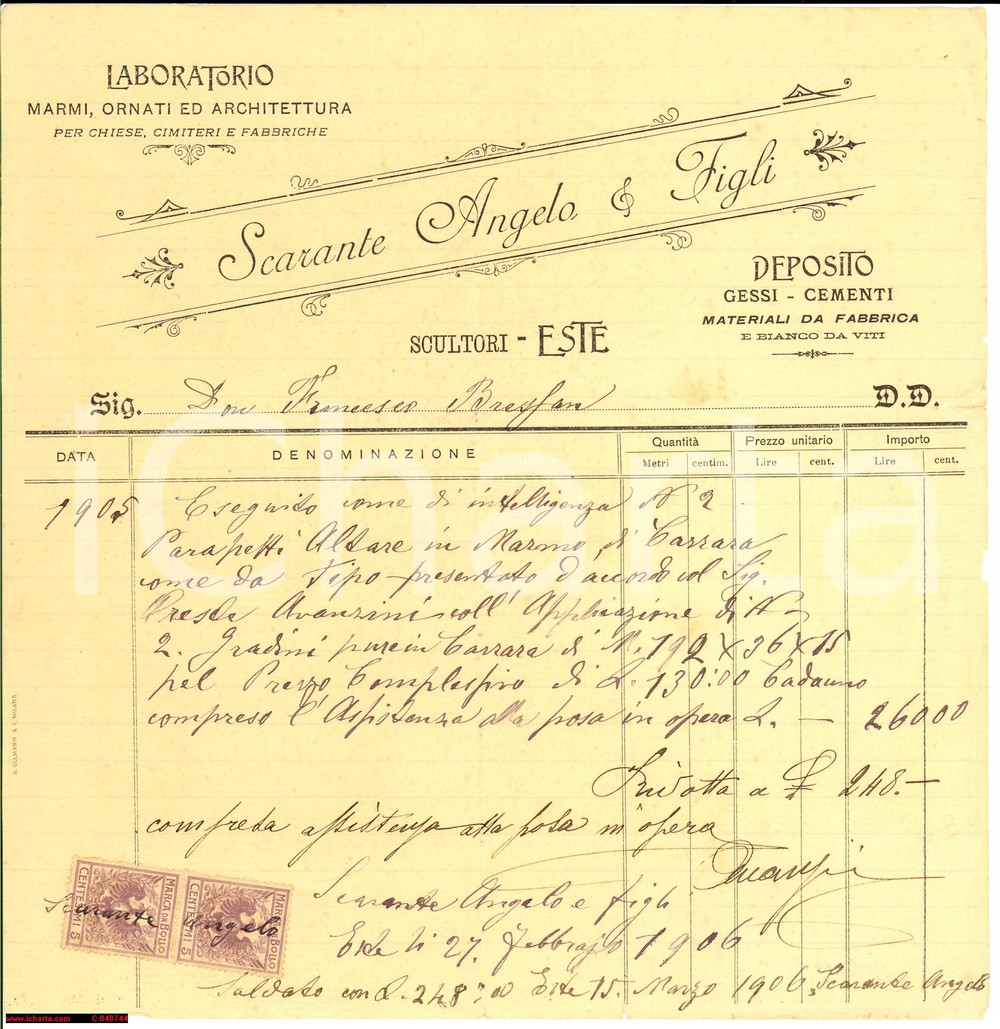 LABORATORIO
MARMI, ORNATI ED ARCHITETTURA
PER CHIESE, CIMITERI E FABBRICHE
Scarante Angelo & Figli
DEPOSITO
GESSI - CEMENTI
MATERIALI DA FABBRICA
E BIANCO DA VITI
SCULTORI - ESTE
Sig. Don Francesco Bressan D.D.
DATA DENOMINAZIONE Quantità Prezzo unitario Importo
Metri centim. Lire cent. Lire cent.
1905 Eseguito come di intelligenza N 2
Parapetti Altare in Marmo di Carrara
come da Tipo presentato d'accordo col Sig.
Avanzini coll' Applicazione di N
2. Gradini pure in Carrara di M. 192 X 36 X 15
pel Prezzo Complessivo di L. 130:00 Cadauno
compreso l'Assistenza alla posa in opera L. — 260 00
Ridotta a £ 248.—
compresa assistenza alla posa in opera
Scarante Angelo e figli
Este li 27. Febbrajo 1906
Saldato con L. 248:00 Este 15. Marzo 1906 Scarante Angelo
MARCA DA BOLLO
CENTESIMI 5
MARCA DA BOLLO
CENTESIMI 5
Scarante Angelo
iCharta
www.icharta.com C-048744